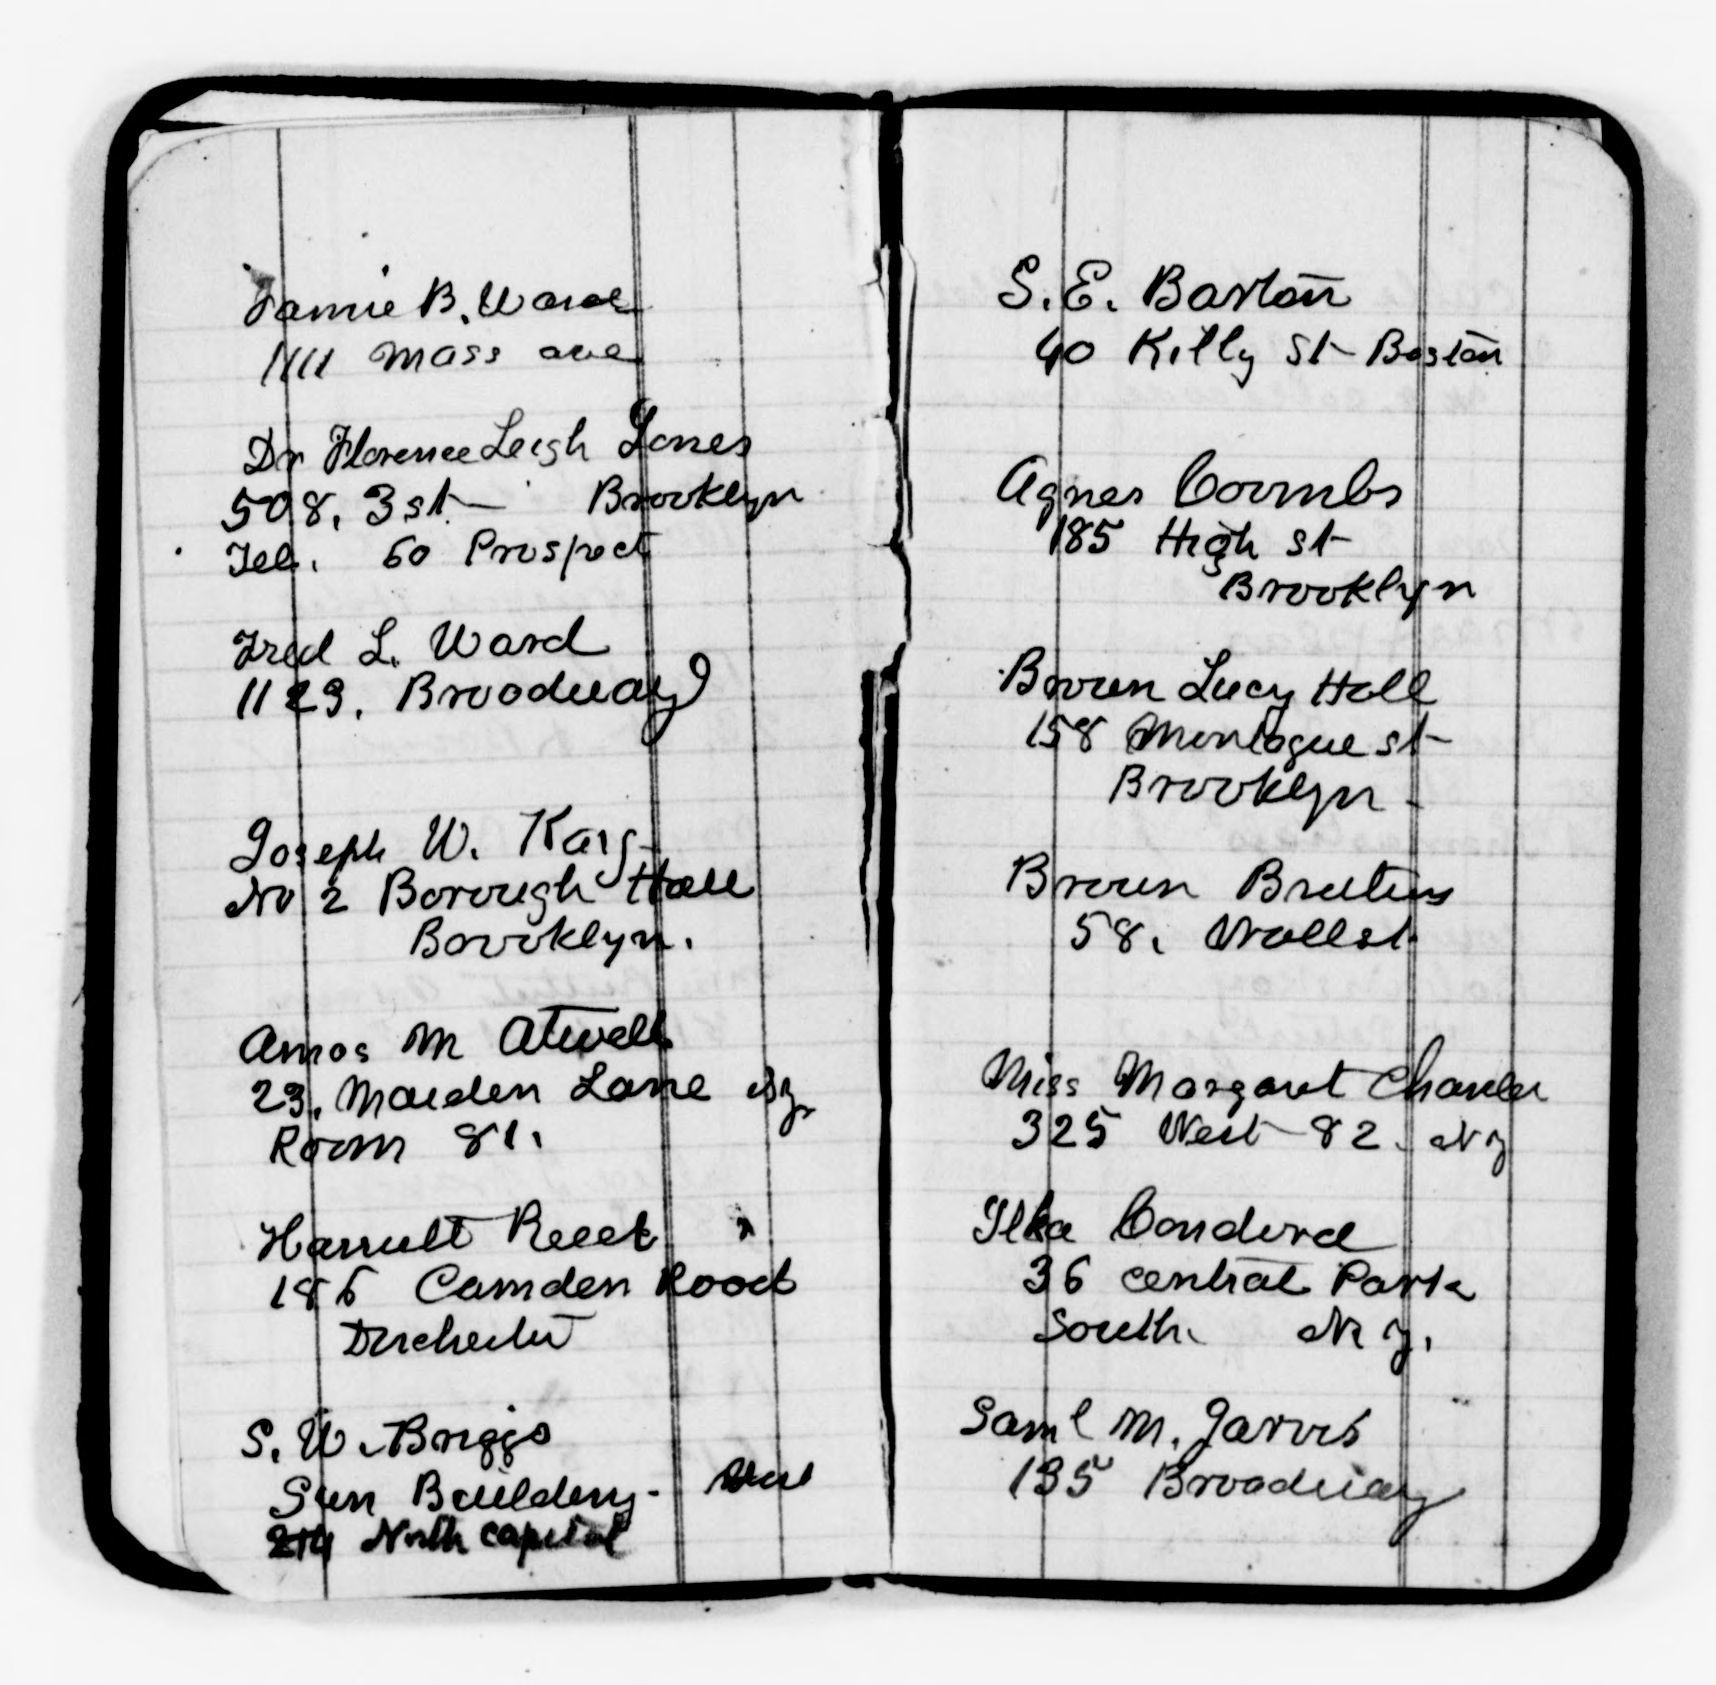 Fannie B. Ward
1111 Mass ave
Dr Florence Leigh Jones
508, 3 st- Brooklyn
Tel. 60 Prospect
Fred L. Ward
1129, Broadway
Joseph W. Karg
No 2 Borough Hall
Borooklyn.
Amos M Atwell
23, Maiden Lane Ny
Room 81.
Harriett Reed
186 Camden Road
Dorchester
S. W. Briggs
Sun Building-
214 North capitol
S. E. Barton
40 Kilby St- Boston
Agnes Coombs
185 High st-
Brooklyn
Brown Lucy Hall
158 Montague st-
Brooklyn-
Brown Brutus
58, Wall st
Miss Margaret Chanler
325 West 82. Ny
Ilka Condova
36 central Park
South. N y.
Saml M. Jarvis
135 Broadway